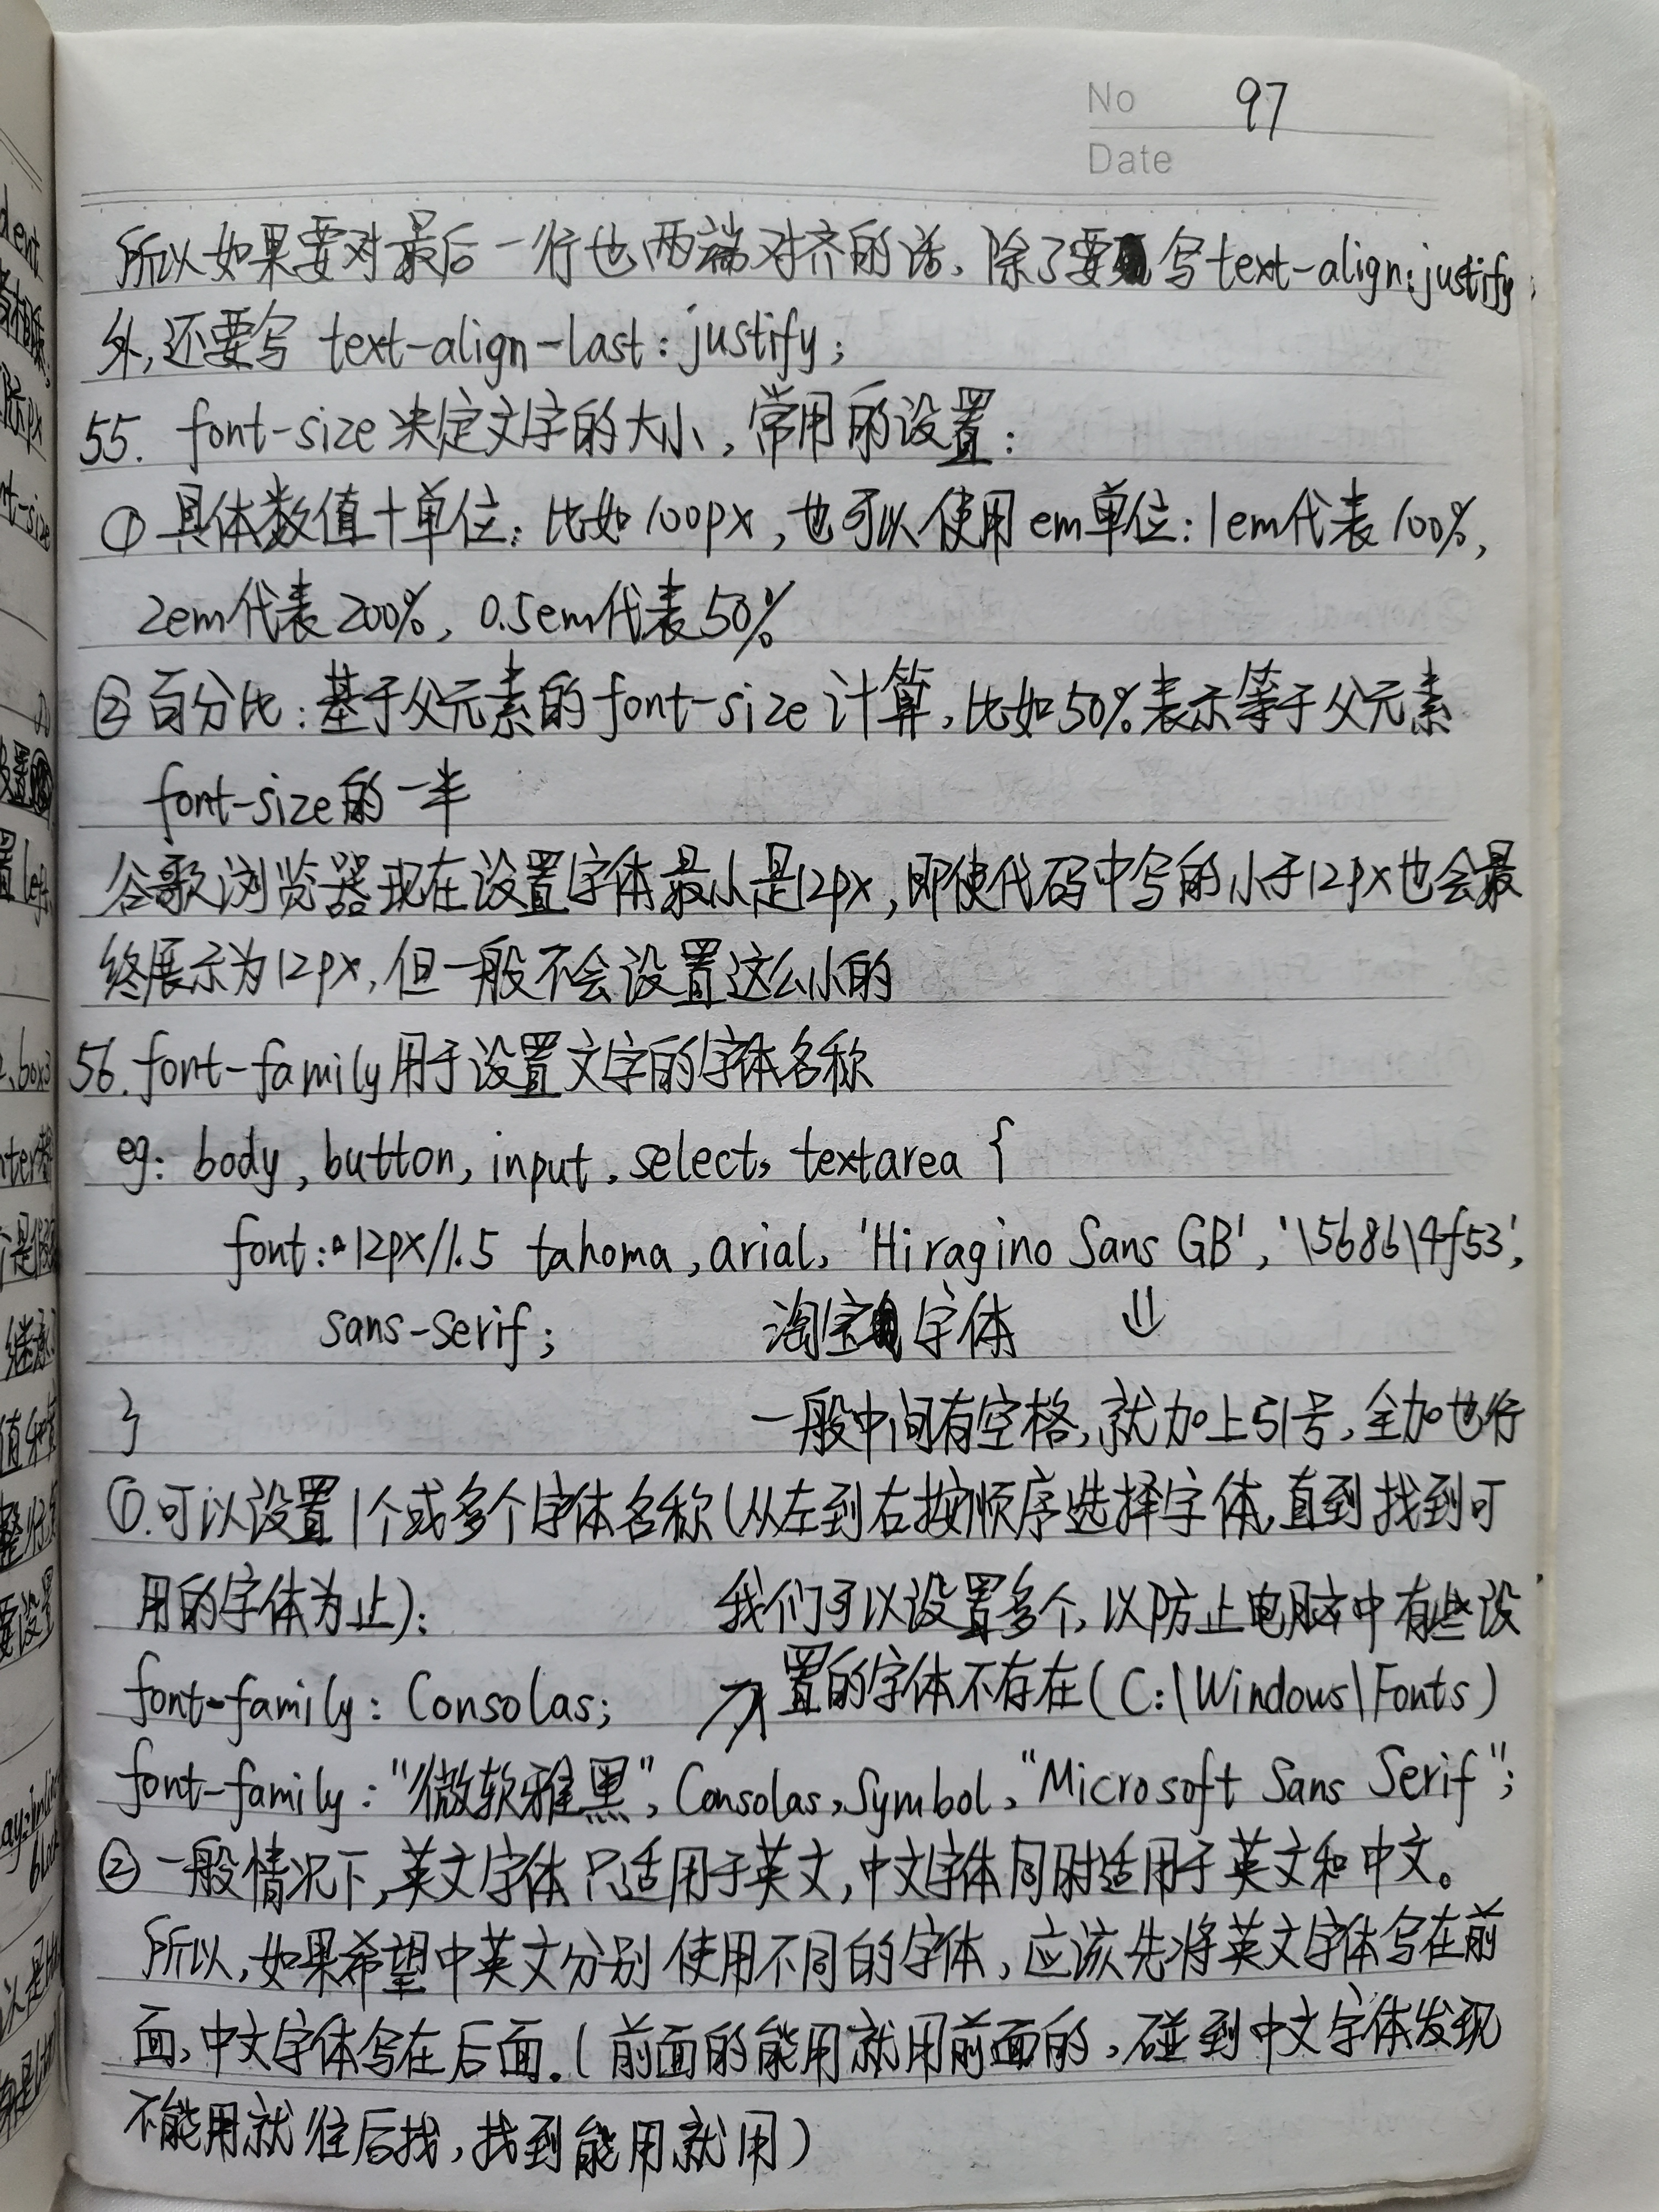 No 97
Date
所以如果要对最后一行也两端对齐的话，除了要写text-align:justify;
外，还要写 text-align-last: justify;
55. font-size决定文字的大小，常用的设置：
① 具体数值+单位：比如100px，也可以使用em单位：1em代表100%，
2em代表200%，0.5em代表50%
② 百分比：基于父元素的font-size计算，比如50%表示等于父元素
font-size的一半
谷歌浏览器现在设置字体最小是12px，即使代码中写的小于12px也会最
终展示为12px，但一般不会设置这么小的
56. font-family用于设置文字的字体名称
eg: body, button, input, select, textarea {
font: 12px/1.5 tahoma, arial, 'Hiragino Sans GB', '\5b8b\4f53',
sans-serif; 淘宝字体 ⇓
} 一般中间有空格，就加上引号，全加也行
①.可以设置1个或多个字体名称(从左到右按顺序选择字体，直到找到可
用的字体为止)： 我们可以设置多个，以防止电脑中有些设
font-family: Consolas; ↗ 置的字体不存在(C:\Windows\Fonts)
font-family: "微软雅黑", Consolas, Symbol, "Microsoft Sans Serif";
② 一般情况下，英文字体只适用于英文，中文字体同时适用于英文和中文。
所以，如果希望中英文分别使用不同的字体，应该先将英文字体写在前
面，中文字体写在后面.(前面的能用就用前面的，碰到中文字体发现
不能用就往后找，找到能用就用)